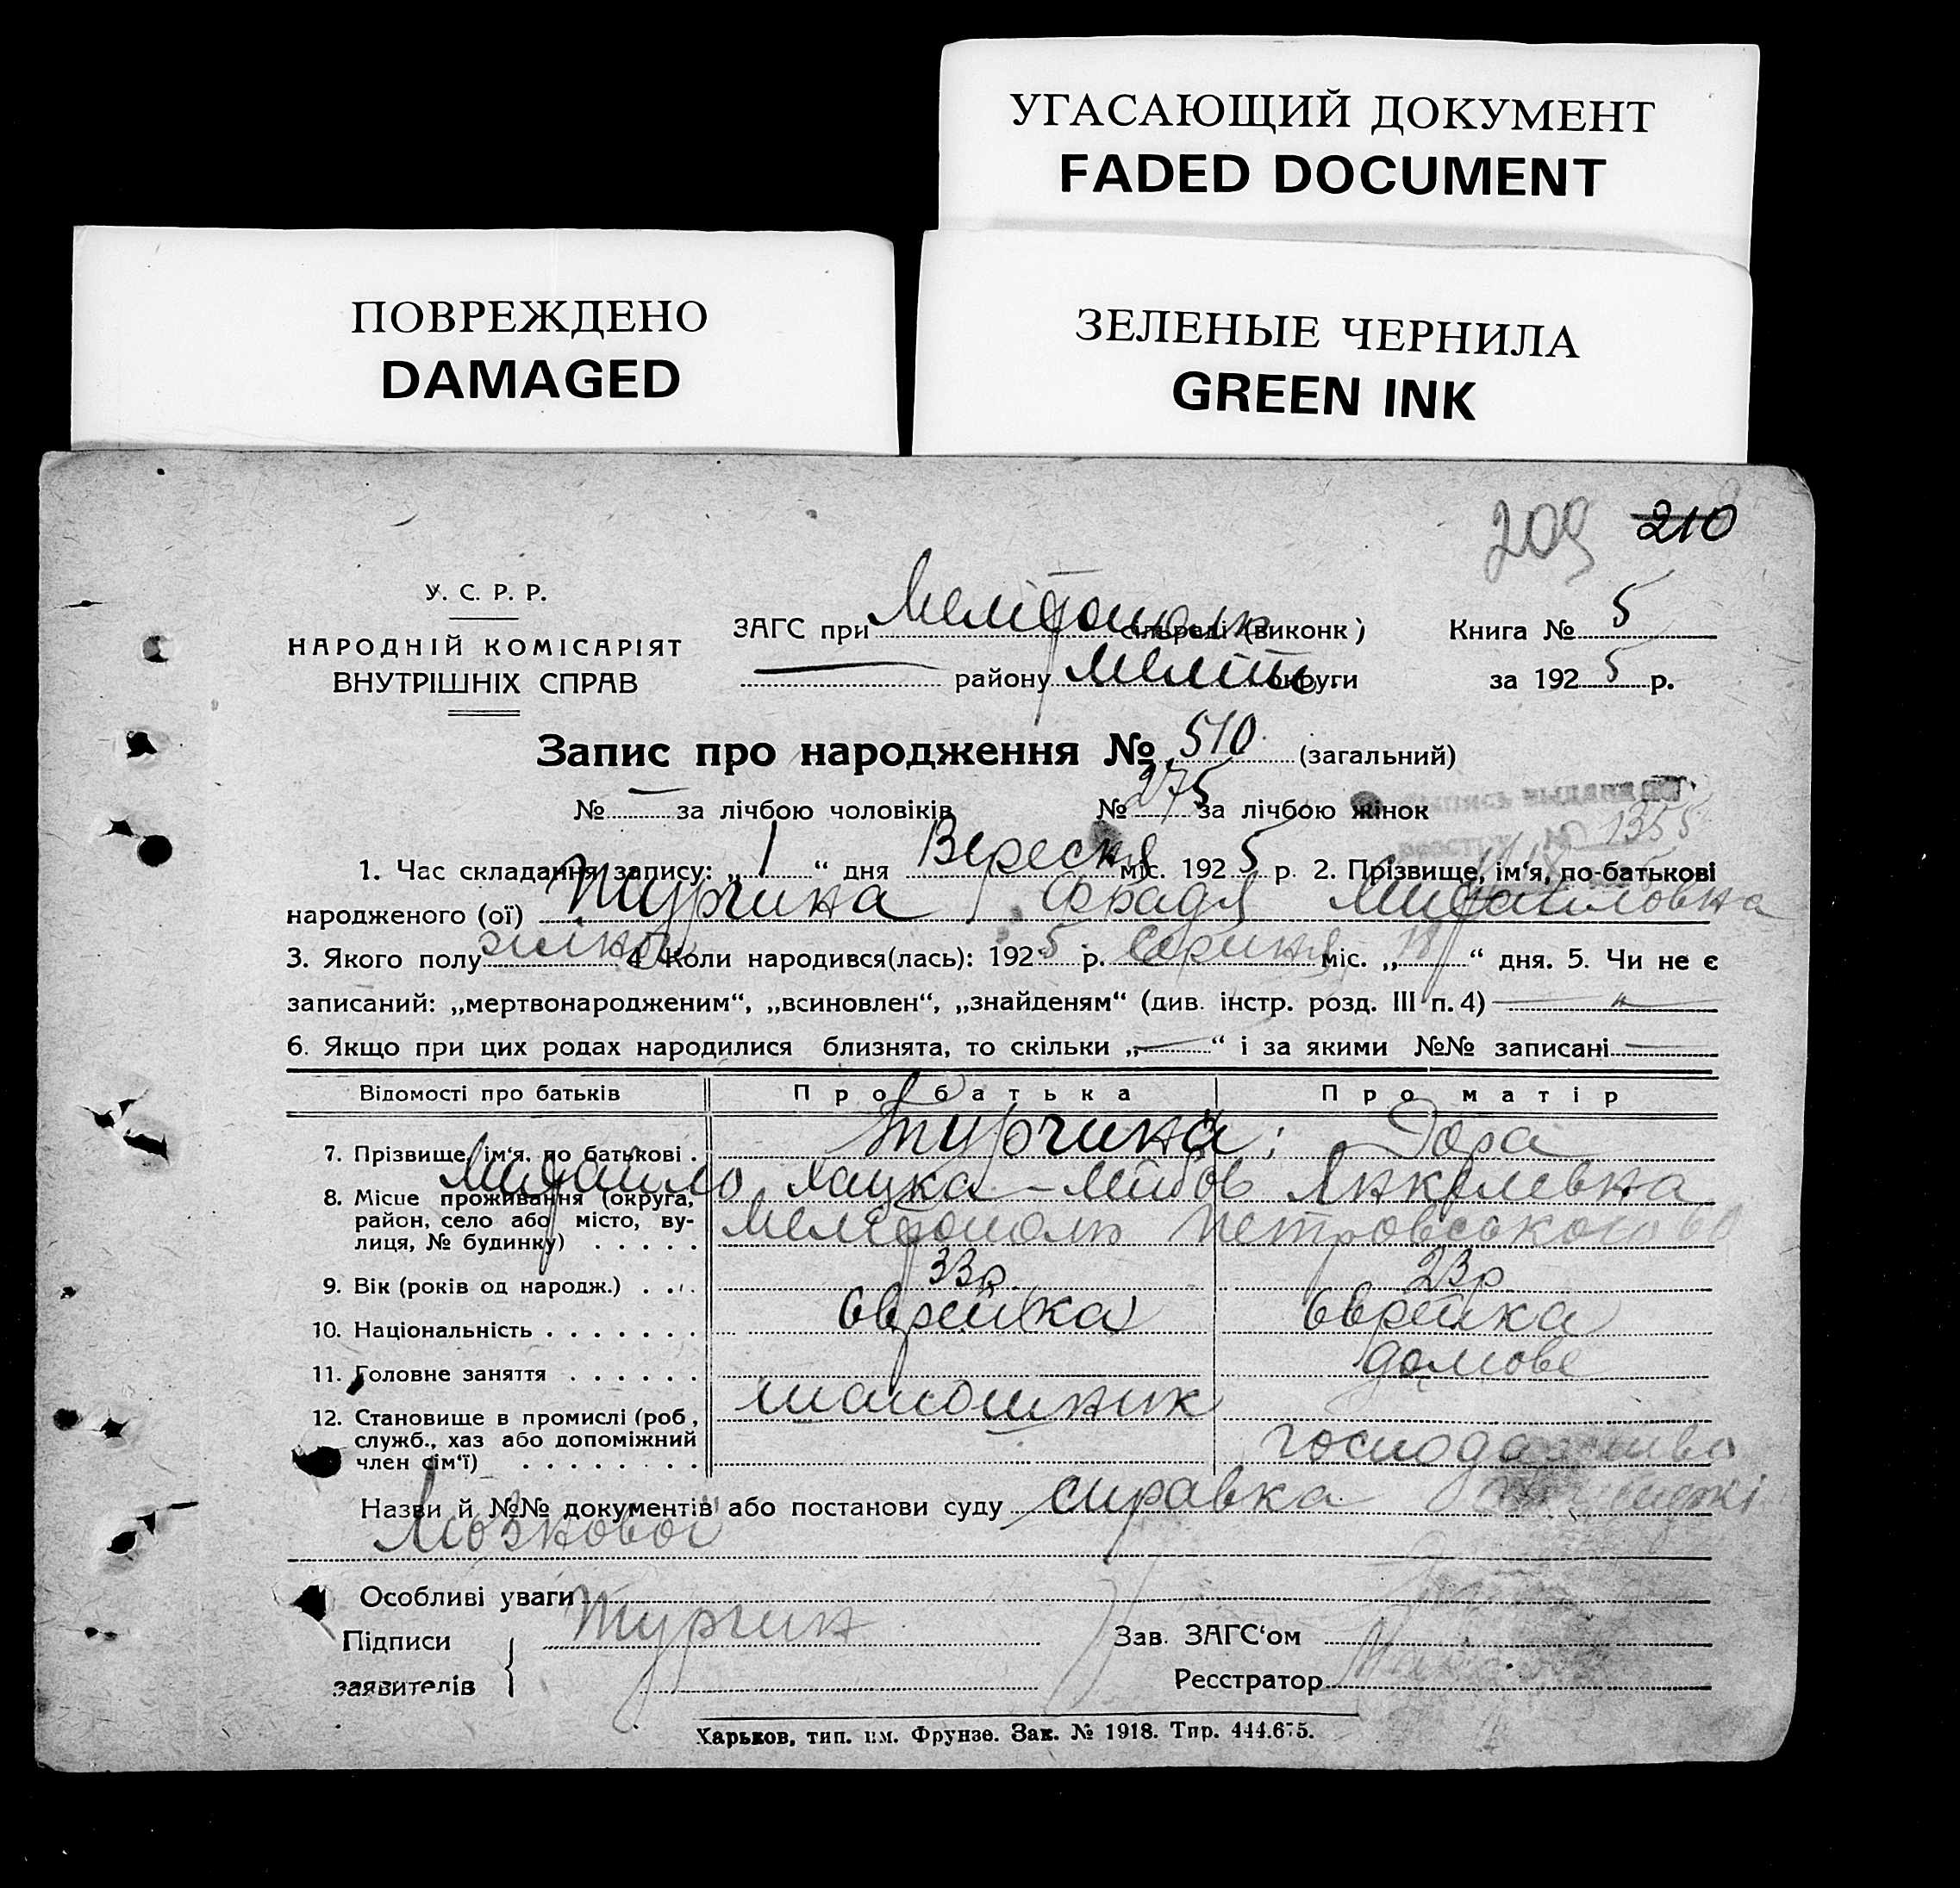 УГАСАЮЩИЙ ДОКУМЕНТ
FADED DOCUMENT
ПОВРЕЖДЕНО
DAMAGED
ЗЕЛЕНЫЕ ЧЕРНИЛА
GREEN INK
209 210
У. С. Р. Р.
НАРОДНІЙ КОМІСАРІЯТ
ВНУТРІШНІХ СПРАВ
ЗАГС при Меліто­поль сільраді (виконк) Книга № 5
району Меліт. округи за 1925 р.
Запис про народження № 510 (загальний)
№ — за лічбою чоловіків № 275 за лічбою жінок
1355
1. Час складання запису: „1“ дня Вересня міс. 1925 р. 2. Прізвище, ім‘я, по-батькові
народженого (ої) Турчина Михайловна
3. Якого полу жіноч 4 Коли народився(лась): 1925 р. Серпня міс. „18“ дня. 5. Чи не є
записаний: „мертвонародженим“, „всиновлен“, „знайденям“ (див. інстр. розд. III п. 4) —„—
6. Якщо при цих родах народилися близнята, то скільки „—“ і за якими №№ записані —
Відомості про батьків Про батька Про матір
7. Прізвище, ім‘я, по батькові . Турчина; Дора
Михайло Хацка-Лейбов Янкелевна
8. Місце проживання (округа, район, село або місто, ву-лиця, № будинку) . . . . . Мелітополь Петровського 60
9. Вік (років од народж.) . . . 33р. 23р
10. Національність . . . . . . . Єврейка Єврейка
11. Головне заняття . . . . . . домове
12. Становище в промислі (роб, служб., хаз або допоміжний член сім‘ї) . . . . . . . . господарство
Назви й №№ документів або постанови суду справка
Особливі уваги
Підписи Турчин Зав. ЗАГС‘ом
заявителів Ресстратор
Харьков, тип. им. Фрунзе. Зак. № 1918. Тир. 444.675.